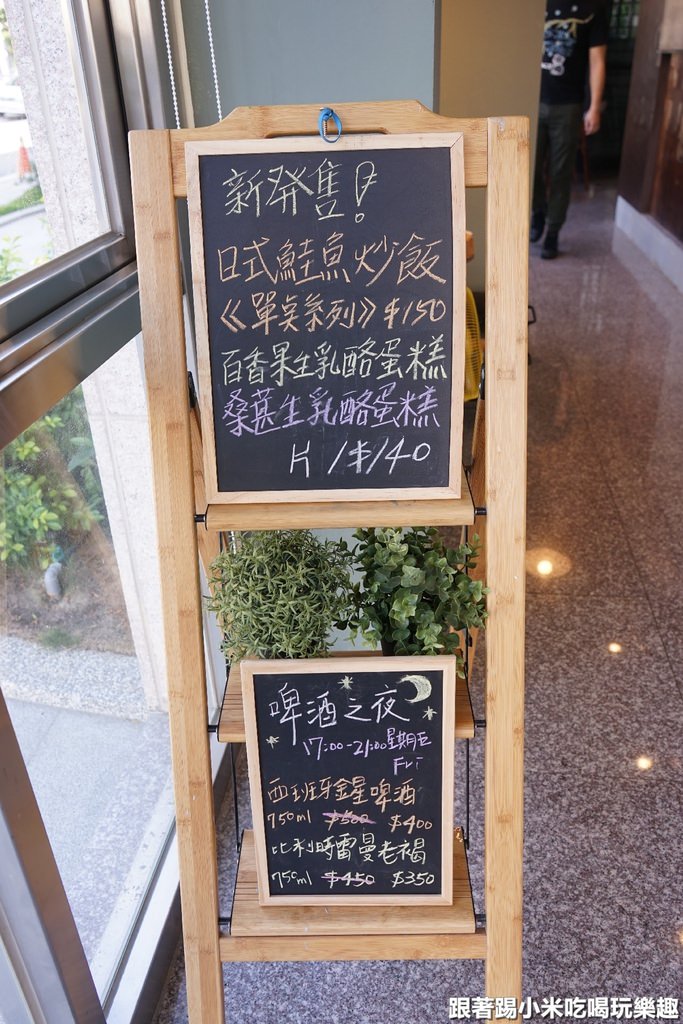 新発售!
日式鮭魚炒飯
《單点系列》$150
百香果生乳酪蛋糕
桑葚生乳酪蛋糕
片/$140
啤酒之夜
17:00-21:00星期五
Fri
西班牙金星啤酒
750ml $500 $400
比利時雷曼老褐
750ml $450 $350
跟著踢小米吃喝玩樂趣